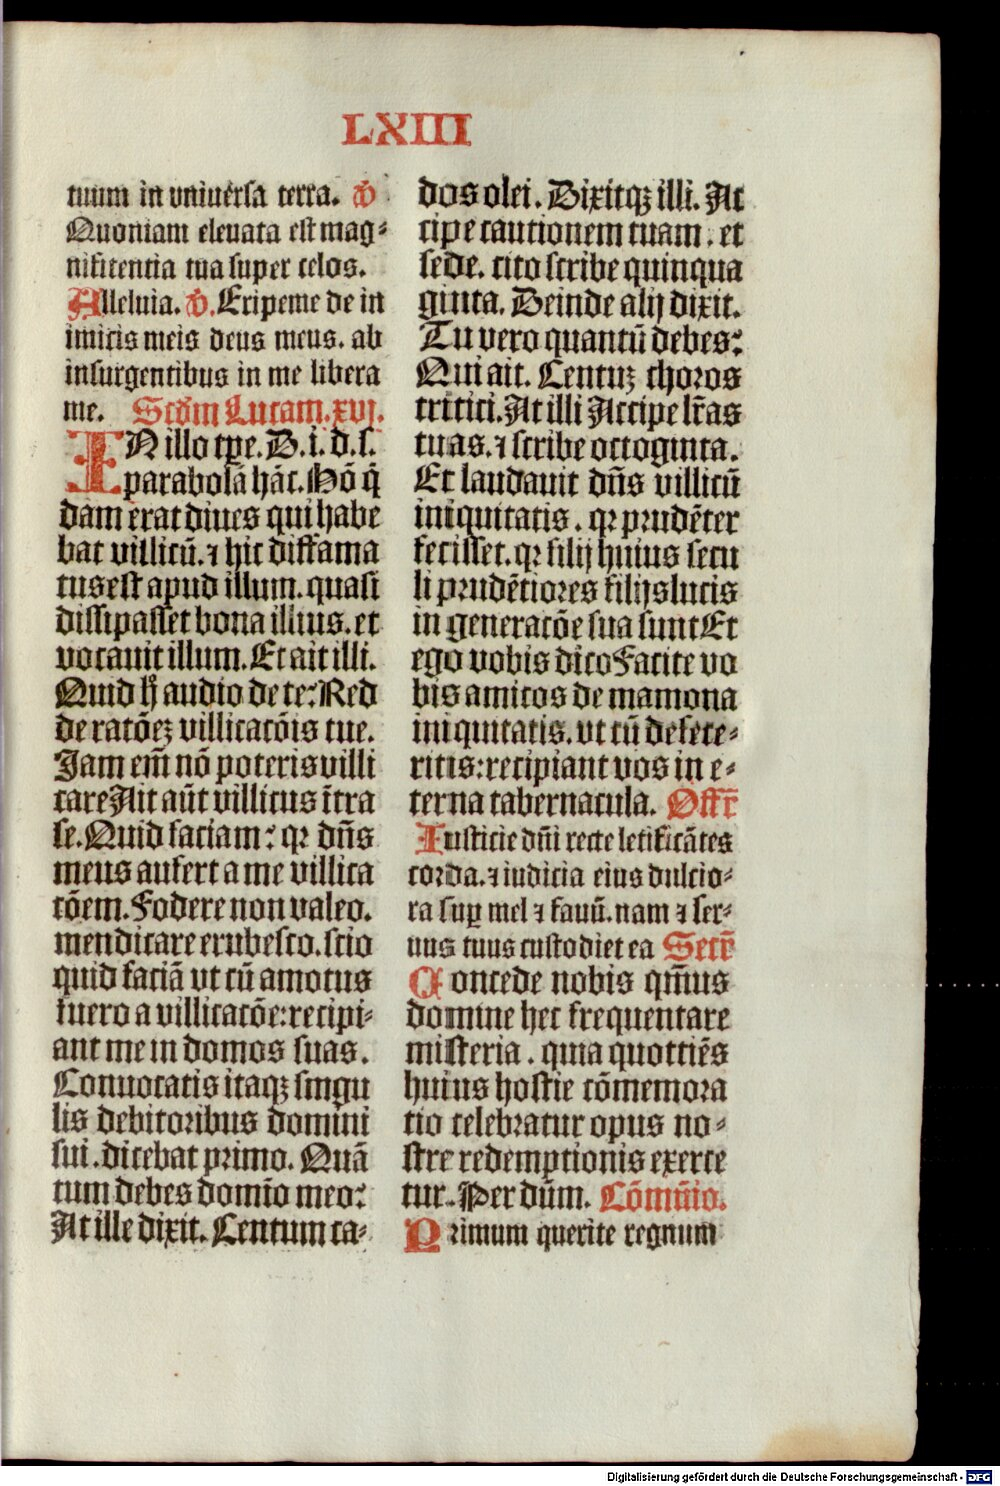 LXIII
tuum in vniuersa terra. ꝟ
Quoniam eleuata est mag⸗
nificentia tua super celos.
Alleluia. ꝟ. Eripe me de in
imicis meis deus meus. ab
insurgentibus in me libera
me. Scd̃m Lucam. xvj.
IN illo tp̃e. D. i. d. s.
parabolā hāc. Hō q̄
dam erat diues qui habe
bat villicū. ⁊ hic diffama
tus est apud illum. quasi
dissipasset bona illius. et
vocauit illum. Et ait illi.
Quid h̄ audio de te: Red
de ratōeꝫ villicatōis tue.
Jam em̄ nō poteris villi
care Ait aūt villicus ītra
se. Quid faciam: qꝛ dn̄s
meus aufert a me villica
tōem. Fodere non valeo.
mendicare erubesco. scio
quid faciā vt cū amotus
fuero a villicatōe: recipi⸗
ant me in domos suas.
Conuocatis itaqꝫ singu
lis debitoribus domini
sui. dicebat primo. Quā
tum debes domīo meo:
At ille dixit. Centum ca⸗
dos olei. Dixitqꝫ illi. Ac
cipe cautionem tuam. et
sede. cito scribe quinqua
ginta. Deinde alij dixit.
Tu vero quantū debes:
Qui ait. Centuꝫ choros
tritici. At illi Accipe lr̄as
tuas. ⁊ scribe octoginta.
Et laudauit dn̄s villicū
iniquitatis. qꝛ prudēter
fecisset. qꝛ filij huius secu
li prudētiores filijs lucis
in generatōe sua sunt Et
ego vobis dico Facite vo
bis amicos de mamona
iniquitatis. vt cū defece⸗
ritis: recipiant vos in e⸗
terna tabernacula. Offr̄
Iusticie dn̄i recte letificātes
corda. ⁊ iudicia eius dulcio⸗
ra suꝑ mel ⁊ fauū. nam ⁊ ser⸗
uus tuus custodiet ea Secr̄
Concede nobis qm̄us
domine hec frequentare
misteria. quia quotiēs
huius hostie cōmemora
tio celebratur opus no⸗
stre redemptionis exerce
tur. Per dūm. Cōmūio.
Primum querite regnum
Digitalisierung gefördert durch die Deutsche Forschungsgemeinschaft - DFG